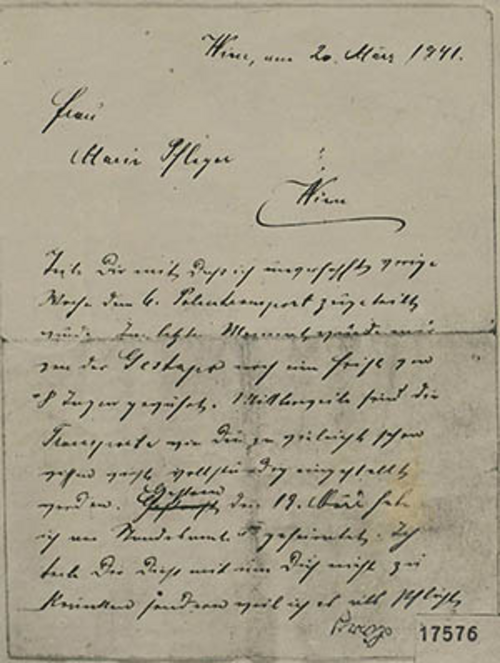 Wien, am 20. März 1941.
Frau
Marie Pfleger
Wien
Teile Dir mit, daß ich ungehofft vorige
Woche dem 6. Polentransport zugeteilt
wurde. Im letzten Moment wurde mir
von der Gestapo noch eine Frist von
8 Tagen gewährt. Mittlerweile sind die
Transporte wie Du ja vielleicht schon
wissen wirst vollständig eingestellt
worden. Gestern den 19. März habe
ich am Standesamt geheiratet. Ich
teile Dir dies mit um Dich nicht zu
kränken sondern weil ich es als
17576